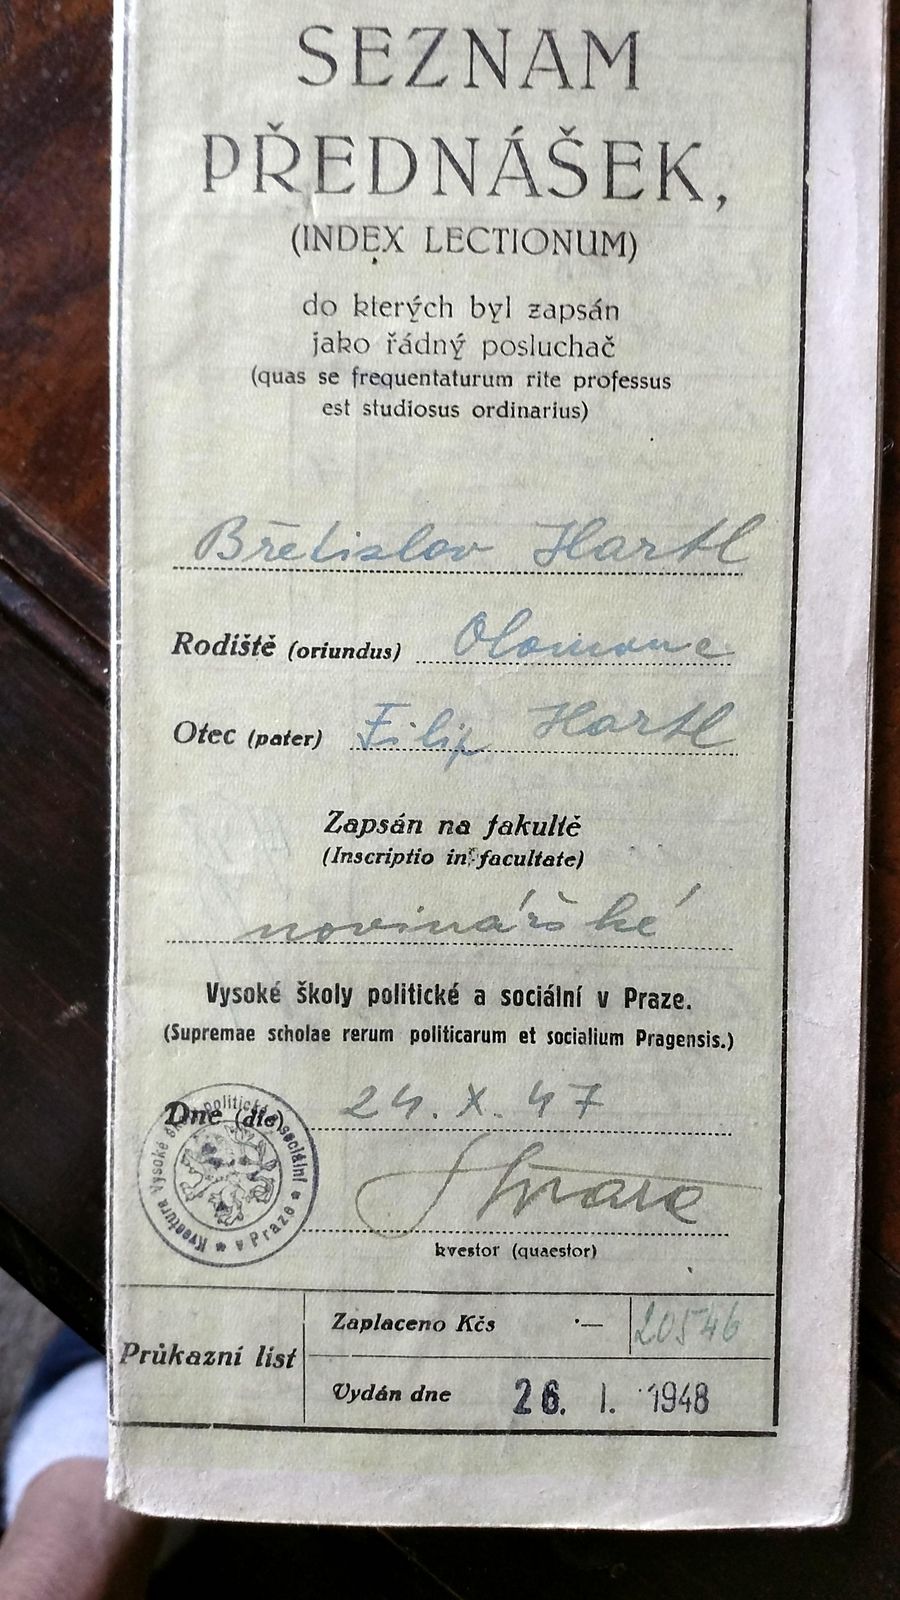 SEZNAM
PŘEDNÁŠEK,
(INDEX LECTIONUM)
do kterých byl zapsán
jako řádný posluchač
(quas se frequentaturum rite professus
est studiosus ordinarius)
Břetislav Hartl
Rodiště (oriundus) Olomouc
Otec (pater) Filip Hartl
Zapsán na fakultě
(Inscriptio in facultate)
novinářské
Vysoké školy politické a sociální v Praze.
(Supremae scholae rerum politicarum et socialium Pragensis.)
Dne (die) 24. X. 47
Kvestura Vysoké školy politické a sociální v Praze
kvestor (quaestor)
Průkazní list
Zaplaceno Kčs ·— 20546
Vydán dne 26. I. 1948